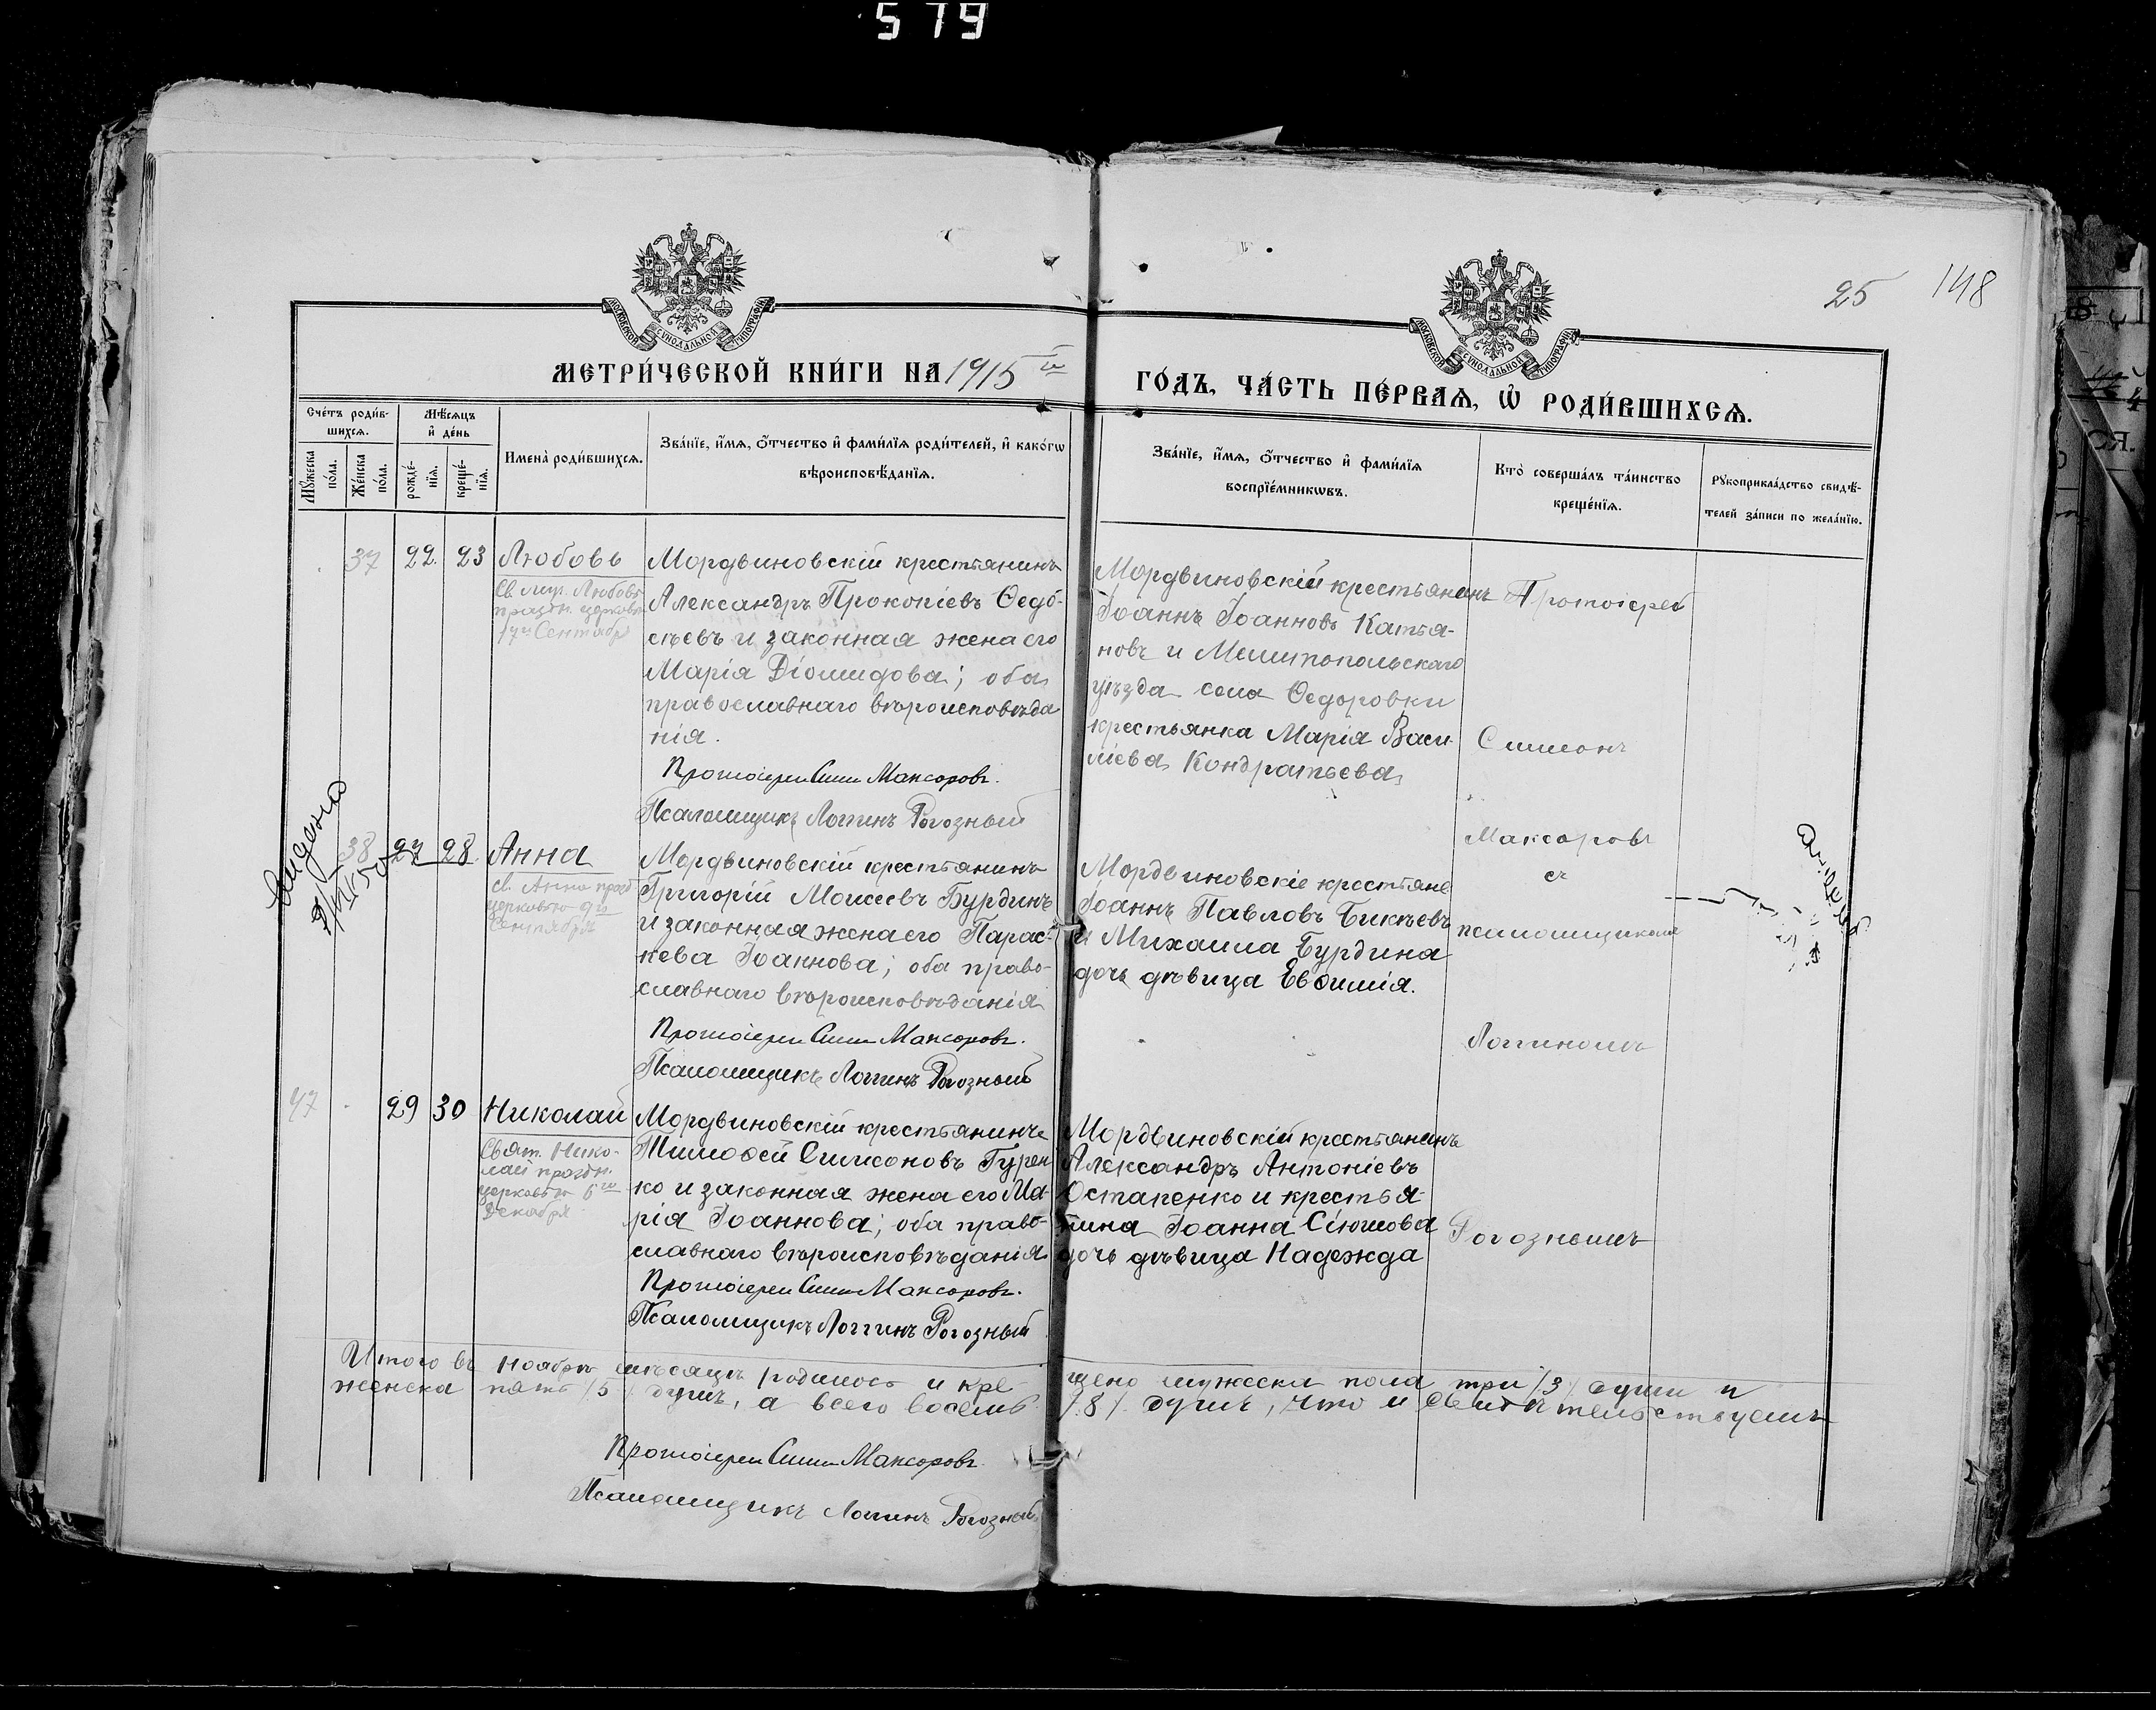 579
25 148
МЕТРИ́ЧЕСКОЙ КНИ́ГИ НА 1915 й
ГО́ДЪ, ЧА́СТЬ ПЕ́РВАЯ, Ѡ РОДИ́ВШИХСЯ.
Сче́тъ роди́в-
шихся.
Му́жеска по́ла.
Же́нска по́ла.
Мѣ́сяцъ
и҆ де́нь
рожде́-
нїя.
креще́-
нїя.
Имена̀ роди́вшихся.
Зва́нїе, и҆́мя, ѻ҆́тчество и҆ фами́лїя роди́телей, и҆ како́гѡ
вѣроисповѣ́данїя.
Зва́нїе, и҆́мя, ѻ҆́тчество и҆ фами́лїя
воспрїе́мникѡвъ.
Кто̀ соверша́лъ та́инство
креще́нїя.
Рукоприкла́дство свидѣ́-
телей за́писи по жела́нїю.
37 22. 23 Любовь
Св. муч. Любовь
праздн. церковью
17го Сентября
Мордвиновскій крестьянинъ
Александръ Прокопіевъ Ѳедо-
сѣевъ и законная жена его
Марія Діомидова; оба
православнаго вѣроисповѣда
нія.
Протоіерей Симеонъ Максоровъ.
Псаломщикъ Логгинъ Рогозный
Мордвиновскій крестьянинъ
Іоаннъ Іоанновъ Катья-
новъ и Мелитопольскаго
уѣзда села Ѳедоровки
крестьянка Марія Васи-
ліева Кондратьева
Протоіерей
Симеонъ
Максоровъ
съ
псаломщикомъ
Логгиномъ
Рогознымъ
38 27 28 Анна
св. Анна празд
церковью 9го
Сентября
Мордвиновскій крестьянинъ
Григорій Моисеевъ Бурдинъ
и законная жена его Парас-
кева Іоаннова; оба право-
славнаго вѣроисповѣданія
Протоіерей Симеонъ Максоровъ.
Псаломщикъ Логгинъ Рогозный
Мордвиновскіе крестьяне
Іоаннъ Павловъ Бикѣевъ
и Михаила Бурдина
дочь дѣвица Евѳимія.
47 29 30 Николай
Свят. Нико-
лай праздн.
церковью 6го
Декабря
Мордвиновскій крестьянинъ
Тимоѳей Симеоновъ Гурен
ко и законная жена его Ма-
рія Іоаннова; оба право-
славнаго вѣроисповѣданія
Протоіерей Симеонъ Максоровъ.
Псаломщикъ Логгинъ Рогозный
Мордвиновскій крестьянинъ
Александръ Антоніевъ
Остапенко и крестья-
нина Іоанна Сіюшова
дочь дѣвица Надежда
Итого въ Ноябрѣ мѣсяцѣ родилось и кре-
щено мужеска пола три /3/ души и
женска пять /5/ душъ, а всего восемь
/8/ душъ, что и свидѣтельствуемъ
Протоіерей Симеонъ Максоровъ.
Псаломщикъ Логгинъ Рогозный